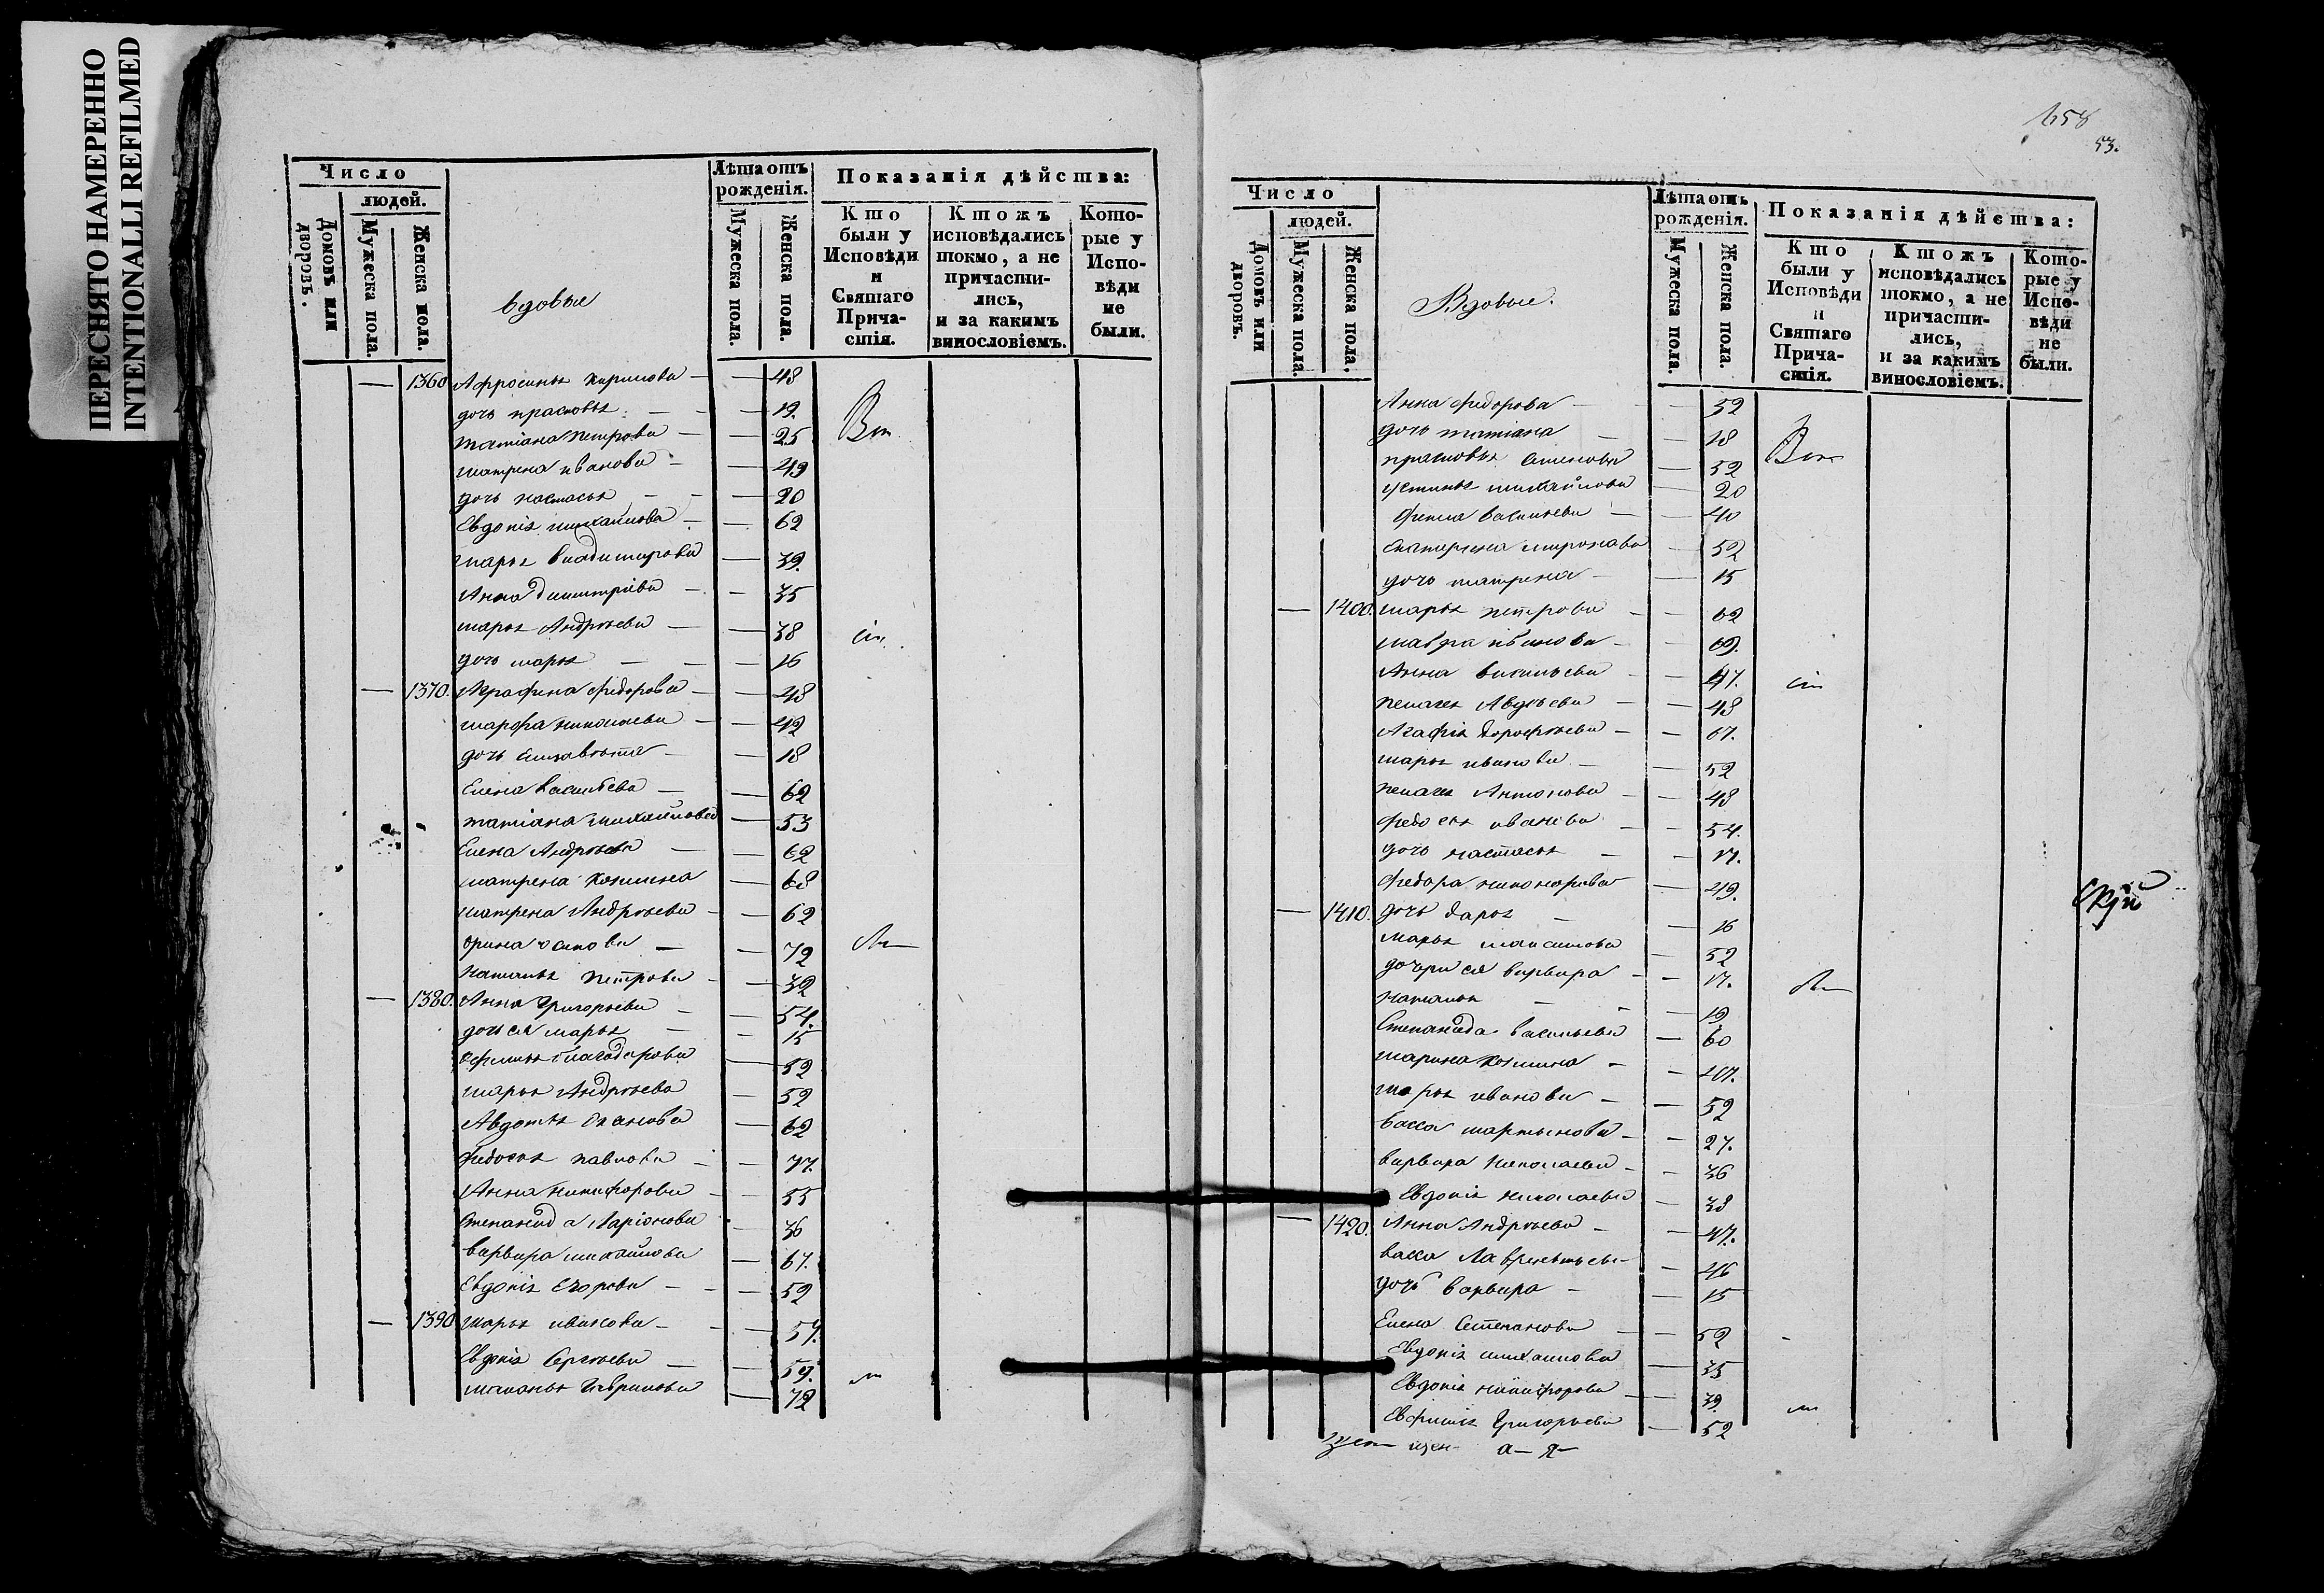 ПЕРЕСНЯТО НАМЕРЕННО
INTENTIONALLI REFILMED
Число
людей.
Домовъ или дворовъ.
Мужеска пола.
Женска пола.
вдовые
Лѣта отъ рожденія.
Мужеска пола.
Женска пола.
Показанія дѣйства:
Кто были у Исповѣди и Святаго Причастія.
Ктожъ исповѣдались токмо, а не причастились, и за какимъ винословіемъ.
Которые у Исповѣди не были.
— 1360 Афросинья Кирилова — — 48
дочь прасковья — — 19.
татіана петрова — — 25
матрена иванова — — 49
дочь настасья — — 20
Евдокія михайлова — — 62
марья владимирова — 39.
Анна димитріева — — 35
марья Андрѣева — — 38
дочь марья — — 16
— 1370. Аграфина федорова — — 48
марфа николаева — — 42
дочь Елизавѣта — — 18
Елена васильева — — 62
татіана михайлова — 53
Елена Андрѣева — — 62
матрена козмина — 68
матрена Андрѣева — — 62
орина осипова — — 72
наталья петрова — — 32
— 1380. Анна григорьева — — 54.
дочь ея марья — — 15
52
марья Андрѣева — 52
Авдотья — 62
федосья павлова — — 77.
Анна никифорова — — 55
Степанида Ларіонова — 36
варвара михайлова — 67.
Евдокія Егорова — — 52
— 1390 марья иванова — — 57.
Евдокія Сергѣева — — 59.
маланья Гаврилова — 72
658
53.
Число
людей.
Домовъ или дворовъ.
Мужеска пола.
Женска пола.
Вдовые.
Лѣта отъ рожденія.
Мужеска пола.
Женска пола.
Показанія дѣйства:
Кто были у Исповѣди и Святаго Причастія.
Ктожъ исповѣдались токмо, а не причастились, и за какимъ винословіемъ.
Которые у Исповѣди не были.
Анна федорова — — 52
дочь татіана — — 18
прасковья — 52
устинья михайлова — 20
фекла васильева — — 40
Екатерина миронова — 52
дочь матрена — — 15
— 1400. марья петрова — — 62
мавра иванова — — 69.
Анна васильева — — 47.
пелагея Авдѣева — — 48
Агафія дорофѣева — — 67.
марья иванова — — 52
пелагея Антонова — — 48
федосья иванова — — 54.
дочь настасья — — 17.
федора — 49.
— 1410. дочь дарья — — 16
марья максимова — 52
дочери ея варвара — — 17.
наталья — — 19
Степанида васильева — 60
марина козмина — — 47.
марья иванова — — 52
васса мартынова — — 27.
варвара николаева — — 36
Евдокія николаева — 38
— 1420. Анна Андрѣева — — 47.
васса Лаврентьева — 46
дочь варвара — — 15
Елена Степанова — — 52
Евдокія михайлова — 35
Евдокія никифорова — — 39.
Евфимія Григорьева — 52